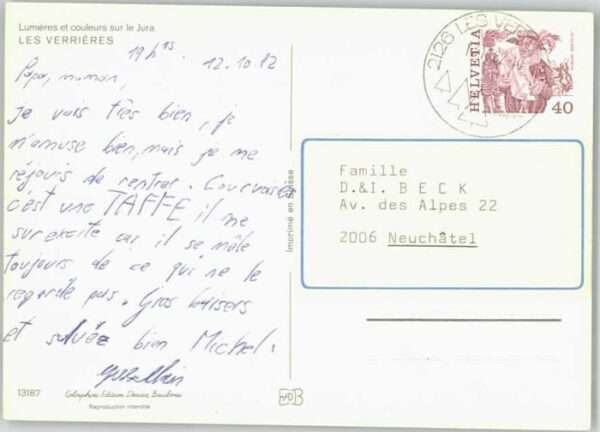 Lumières et couleurs sur le Jura
LES VERRIÈRES
19 hrs 12.10.82
Papa, maman,
Je vais très bien, je
m'amuse bien, mais je me
réjouis de rentrer.
c'est une TAFFE il me
surexcite car il se mêle
toujours de ce qui ne le
regarde pas. Gros baisers
et saluée bien Michel.
13187
Reproduction interdite
Imprimé en Suisse
2126 LES VERR
HELVETIA
40
Famille
D.&I. BECK
Av. des Alpes 22
2006 Neuchâtel